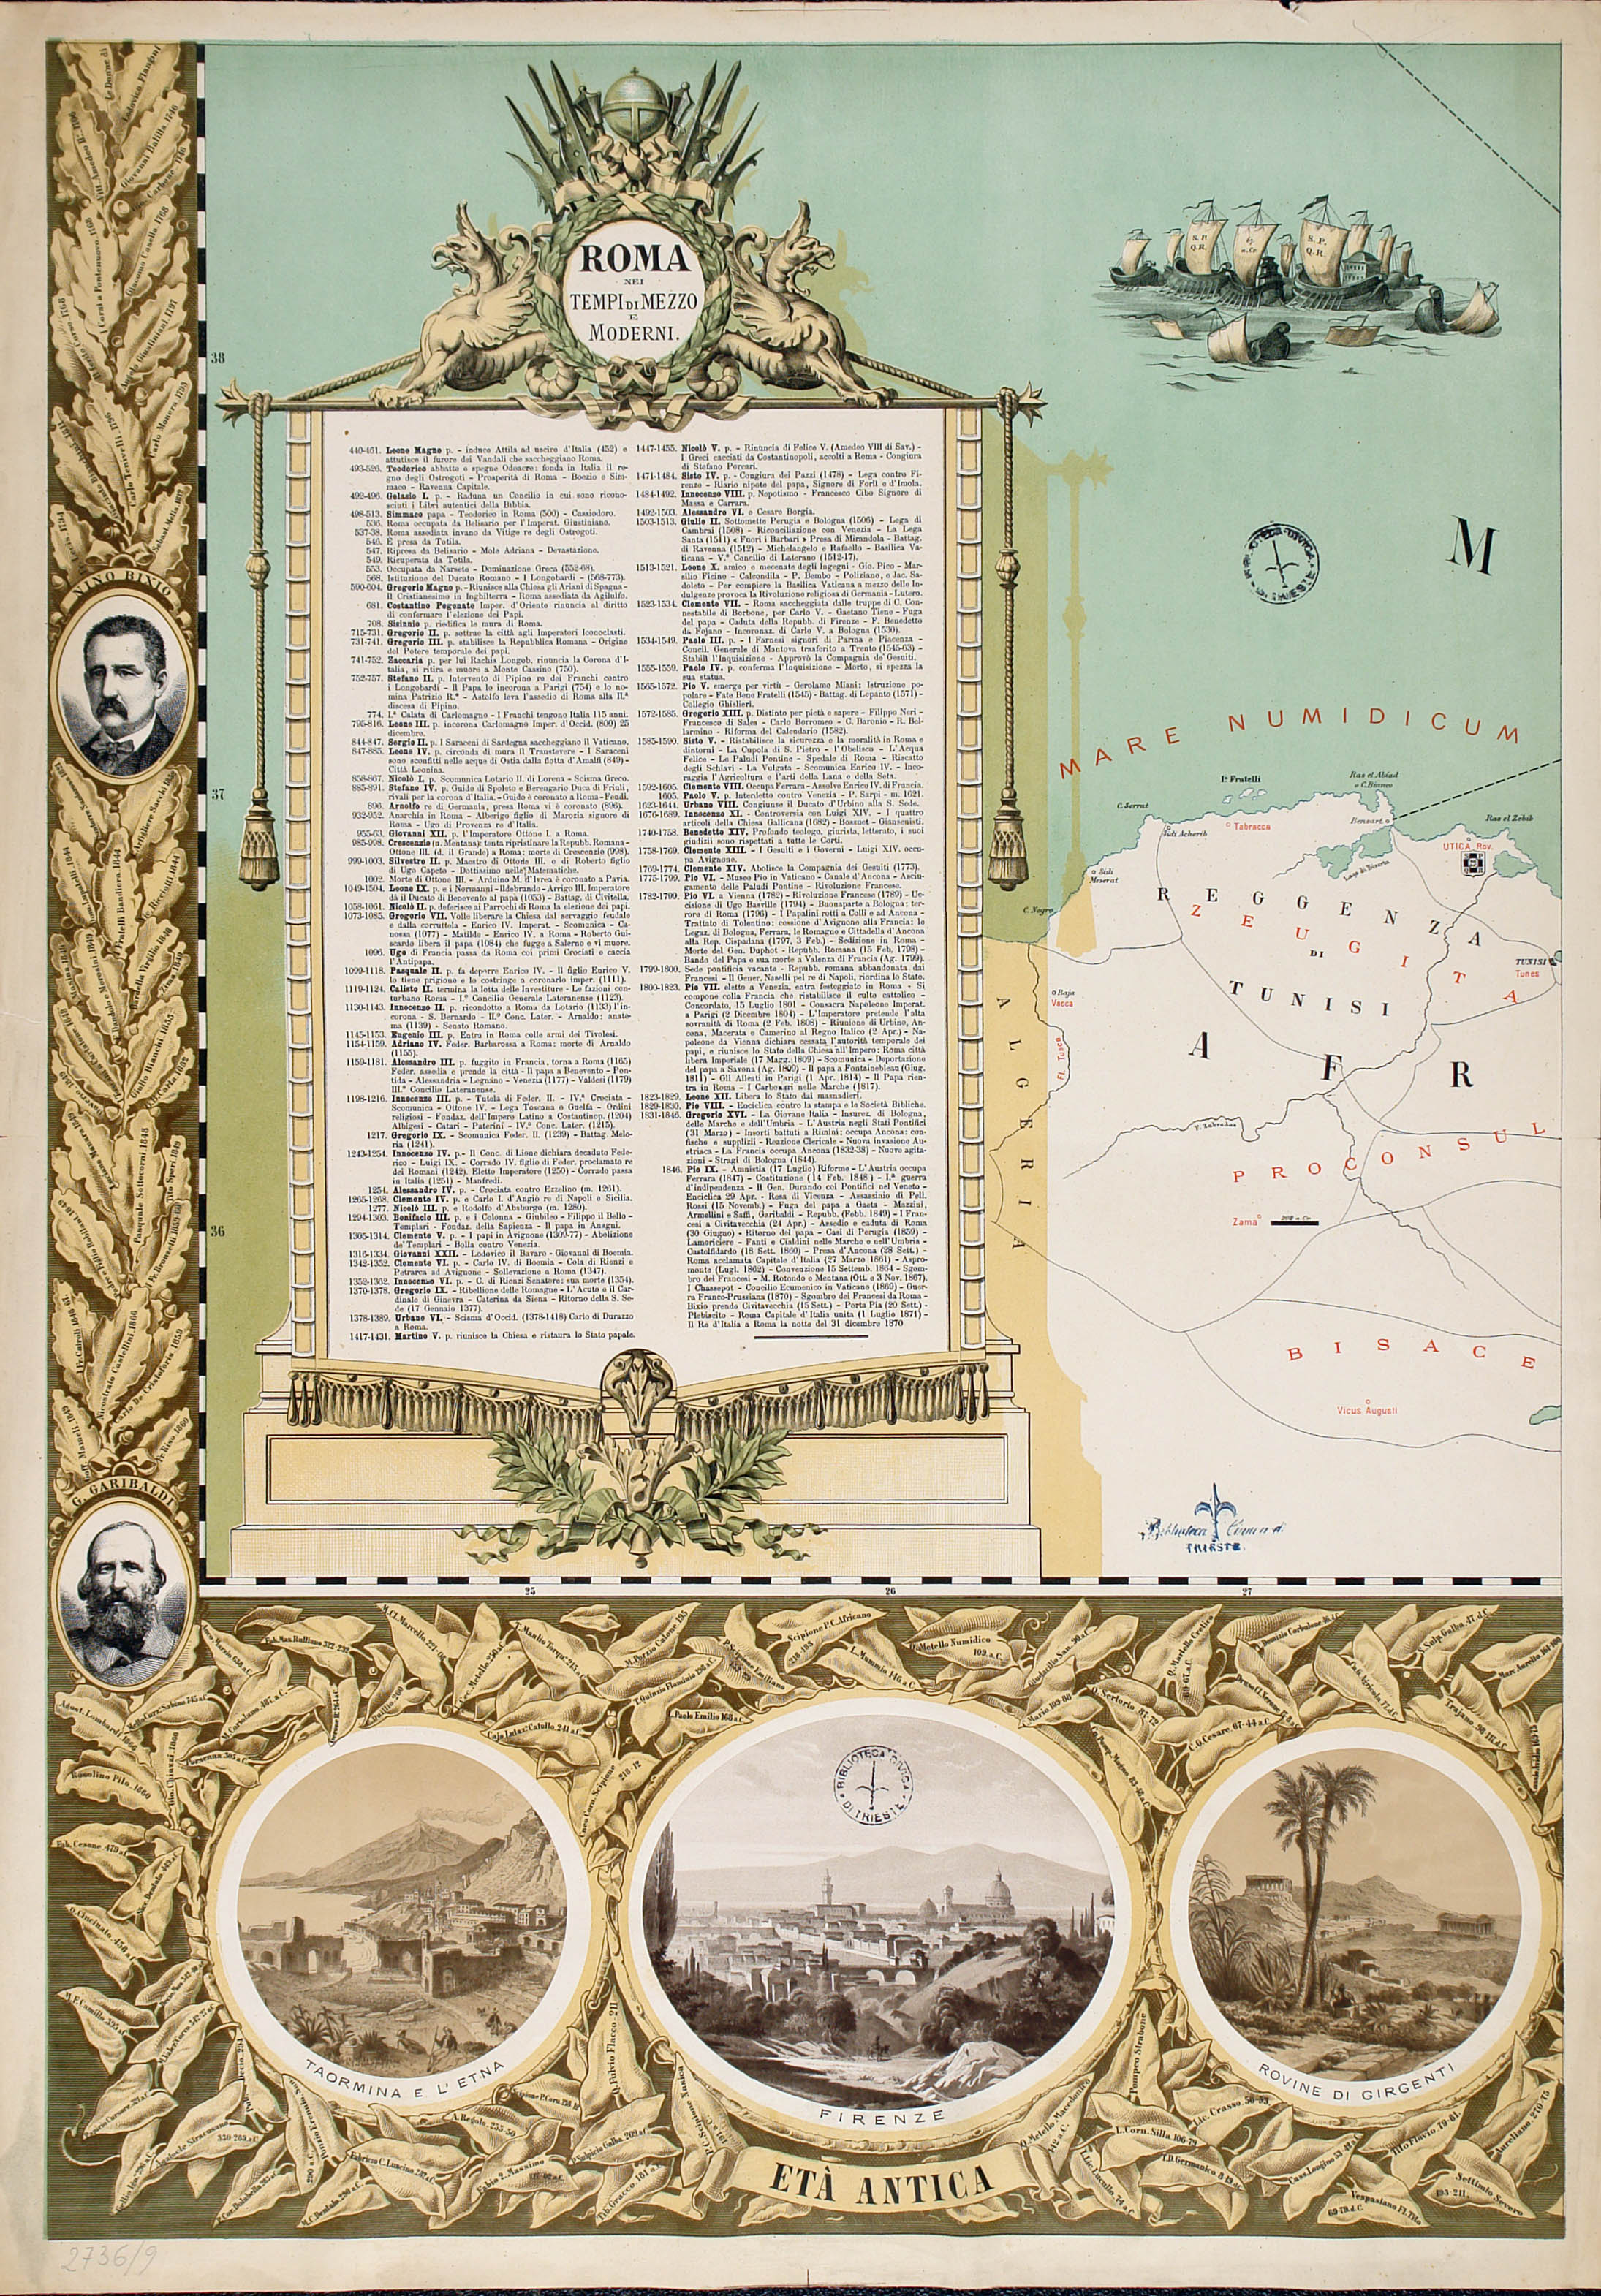 ROMA
NEI
TEMPI DI MEZZO
E
MODERNI.
440-461. Leone Magno p. - induce Attila ad uscire d'Italia (452) e
attutisce il furore dei Vandali che saccheggiano Roma.
493-526. Teodorico abbatte e spegne Odoacre: fonda in Italia il re-
gno degli Ostrogoti - Prosperità di Roma - Boezio e Sim-
maco - Ravenna Capitale.
492-496. Gelasio I. p. - Raduna un Concilio in cui sono ricono-
sciuti i Libri autentici della Bibbia.
498-513. Simmaco papa - Teodorico in Roma (500) - Cassiodoro.
536. Roma occupata da Belisario per l'Imperat. Giustiniano.
537-38. Roma assediata invano da Vitige re degli Ostrogoti.
546. È presa da Totila.
547. Ripresa da Belisario - Mole Adriana - Devastazione.
549. Ricuperata da Totila.
553. Occupata da Narsete - Dominazione Greca (552-68).
568. Istituzione del Ducato Romano - I Longobardi - (568-773).
590-604. Gregorio Magno p. - Riunisce alla Chiesa gli Ariani di Spagna -
Il Cristianesimo in Inghilterra - Roma assediata da Agilulfo.
681. Costantino Pogonate Imper. d'Oriente rinuncia al diritto
di confermare l'elezione dei Papi.
708. Sisinnio p. riedifica le mura di Roma.
715-731. Gregorio II. p. sottrae la città agli Imperatori Iconoclasti.
731-741. Gregorio III. p. stabilisce la Repubblica Romana - Origine
del Potere temporale dei papi.
741-752. Zaccaria p. per lui Rachis Longob. rinuncia la Corona d'I-
talia, si ritira e muore a Monte Cassino (750).
752-757. Stefano II. p. Intervento di Pipino re dei Franchi contro
i Longobardi - Il Papa lo incorona a Parigi (754) e lo no-
mina Patrizio R.º - Astolfo leva l'assedio di Roma alla II.ª
discesa di Pipino.
774. I.ª Calata di Carlomagno - I Franchi tengono Italia 115 anni.
795-816. Leone III. p. incorona Carlomagno Imper. d'Occid. (800) 25
dicembre.
844-847. Sergio II. p. I Saraceni di Sardegna saccheggiano il Vaticano.
847-885. Leone IV. p. circonda di mura il Transtevere - I Saraceni
sono sconfitti nelle acque di Ostia dalla flotta d'Amalfi (849) -
Città Leonina.
858-867. Nicolò I. p. Scomunica Lotario II. di Lorena - Scisma Greco.
885-891. Stefano IV. p. Guido di Spoleto e Berengario Duca di Friuli,
rivali per la corona d'Italia. - Guido è coronato a Roma - Feudi.
896. Arnolfo re di Germania, presa Roma vi è coronato (896).
932-952. Anarchia in Roma - Alberigo figlio di Marozia signore di
Roma - Ugo di Provenza re d'Italia.
955-63. Giovanni XII. p. l'Imperatore Ottone I. a Roma.
985-998. Crescenzio (n. Mentana): tenta ripristinare la Repubb. Romana -
Ottone III. (d. il Grande) a Roma: morte di Crescenzio (998).
999-1003. Silvestro II. p. Maestro di Ottone III. e di Roberto figlio
di Ugo Capeto - Dottissimo nelle Matematiche.
1002. Morte di Ottone III. - Arduino M. d'Ivrea è coronato a Pavia.
1049-1504. Leone IX. p. e i Normanni - Ildebrando - Arrigo III. Imperatore
dà il Ducato di Benevento al papa (1053) - Battag. di Civitella.
1058-1061. Nicolò II. p. deferisce ai Parrochi di Roma la elezione dei papi.
1073-1085. Gregorio VII. Volle liberare la Chiesa dal servaggio feudale
e dalla corruttela - Enrico IV. Imperat. - Scomunica - Ca-
nossa (1077) - Matilde - Enrico IV. a Roma - Roberto Gui-
scardo libera il papa (1084) che fugge a Salerno e vi muore.
1096. Ugo di Francia passa da Roma coi primi Crociati e caccia
l'Antipapa.
1099-1118. Pasquale II. p. fa deporre Enrico IV. - Il figlio Enrico V.
lo tiene prigione e lo costringe a coronarlo imper. (1111).
1119-1124. Calisto II. termina la lotta delle Investiture - Le fazioni con-
turbano Roma - I.º Concilio Generale Lateranense (1123).
1130-1143. Innocenzo II. p. ricondotto a Roma da Lotario (1133) l'in-
corona - S. Bernardo - II.º Conc. Later. - Arnaldo: anate-
ma (1139) - Senato Romano.
1145-1153. Eugenio III. p. Entra in Roma colle armi dei Tivolesi.
1154-1159. Adriano IV. Feder. Barbarossa a Roma: morte di Arnaldo
(1155).
1159-1181. Alessandro III. p. fuggito in Francia, torna a Roma (1165)
Feder. assedia e prende la città - Il papa a Benevento - Pon-
tida - Alessandria - Legnano - Venezia (1177) - Valdesi (1179)
III.º Concilio Lateranense.
1198-1216. Innocenzo III. p. - Tutela di Feder. II. - IV.ª Crociata -
Scomunica - Ottone IV. - Lega Toscana o Guelfa - Ordini
religiosi - Fondaz. dell'Impero Latino a Costantinop. (1204)
Albigesi - Catari - Paterini - IV.º Conc. Later. (1215).
1217. Gregorio IX. - Scomunica Feder. II. (1239) - Battag. Melo-
ria (1241).
1243-1254. Innocenzo IV. p. - Il Conc. di Lione dichiara decaduto Fede-
rico - Luigi IX. - Corrado IV. figlio di Feder. proclamato re
dei Romani (1242). Eletto Imperatore (1250) - Corrado passa
in Italia (1251) - Manfredi.
1254. Alessandro IV. p. - Crociata contro Ezzelino (m. 1261).
1265-1268. Clemente IV. p. e Carlo I. d'Angiò re di Napoli e Sicilia.
1277. Nicolò III. p. e Rodolfo d'Absburgo (m. 1280).
1294-1303. Bonifacio III. p. e i Colonna - Giubileo - Filippo il Bello -
Templari - Fondaz. della Sapienza - Il papa in Anagni.
1305-1314. Clemente V. p. - I papi in Avignone (1309-77) - Abolizione
de' Templari - Bolla contro Venezia.
1316-1334. Giovanni XXII. - Lodovico il Bavaro - Giovanni di Boemia.
1342-1352. Clemente VI. p. - Carlo IV. di Boemia - Cola di Rienzi e
Petrarca ad Avignone - Sollevazione a Roma (1347).
1352-1362. Innocenzo VI. p. - C. di Rienzi Senatore: sua morte (1354).
1370-1378. Gregorio IX. - Ribellione delle Romagne - L'Acuto e il Car-
dinale di Ginevra - Caterina da Siena - Ritorno della S. Se-
de (17 Gennaio 1377).
1378-1389. Urbano VI. - Scisma d'Occid. (1378-1418) Carlo di Durazzo
a Roma.
1417-1431. Martino V. p. riunisce la Chiesa e ristaura lo Stato papale.
1447-1455. Nicolò V. p. - Rinuncia di Felice V. (Amedeo VIII di Sav.) -
I Greci cacciati da Costantinopoli, accolti a Roma - Congiura
di Stefano Porcari.
1471-1484. Sisto IV. p. - Congiura dei Pazzi (1478) - Lega contro Fi-
renze - Riario nipote del papa, Signore di Forlì e d'Imola.
1484-1492. Innocenzo VIII. p. Nepotismo - Francesco Cibo Signore di
Massa e Carrara.
1492-1503. Alessandro VI. e Cesare Borgia.
1503-1513. Giulio II. Sottomette Perugia e Bologna (1506) - Lega di
Cambrai (1508) - Riconciliazione con Venezia - La Lega
Santa (1511) « Fuori i Barbari » Presa di Mirandola - Battag.
di Ravenna (1512) - Michelangelo e Rafaello - Basilica Va-
ticana - V.º Concilio di Laterano (1512-17).
1513-1521. Leone X. amico e mecenate degli Ingegni - Gio. Pico - Mar-
silio Ficino - Calcondila - P. Bembo - Poliziano, e Jac. Sa-
doleto - Per compiere la Basilica Vaticana a mezzo delle In-
dulgenze provoca la Rivoluzione religiosa di Germania - Lutero.
1523-1534. Clemente VII. - Roma saccheggiata dalle truppe di C. Con-
nestabile di Borbone, per Carlo V. - Gaetano Tiene - Fuga
del papa - Caduta della Repubb. di Firenze - F. Benedetto
da Fojano - Incoronaz. di Carlo V. a Bologna (1530).
1534-1549. Paolo III. p. - I Farnesi signori di Parma e Piacenza -
Concil. Generale di Mantova trasferito a Trento (1545-63) -
Stabilì l'Inquisizione - Approvò la Compagnia de' Gesuiti.
1555-1559. Paolo IV. p. conferma l'Inquisizione - Morto, si spezza la
sua statua.
1565-1572. Pio V. emerge per virtù - Gerolamo Miani: Istruzione po-
polare - Fate Bene Fratelli (1545) - Battag. di Lepanto (1571) -
Collegio Ghislieri.
1572-1585. Gregorio XIII. p. Distinto per pietà e sapere - Filippo Neri -
Francesco di Sales - Carlo Borromeo - C. Baronio - R. Bel-
larmino - Riforma del Calendario (1582).
1585-1590. Sisto V. - Ristabilisce la sicurezza e la moralità in Roma e
dintorni - La Cupola di S. Pietro - l'Obelisco - L'Acqua
Felice - Le Paludi Pontine - Spedale di Roma - Riscatto
degli Schiavi - La Vulgata - Scomunica Enrico IV. - Inco-
raggia l'Agricoltura e l'arti della Lana e della Seta.
1592-1605. Clemente VIII. Occupa Ferrara - Assolve Enrico IV. di Francia.
1605. Paolo V. p. Interdetto contro Venezia - P. Sarpi - m. 1621.
1623-1644. Urbano VIII. Congiunse il Ducato d'Urbino alla S. Sede.
1676-1689. Innocenzo XI. - Controversia con Luigi XIV. - I quattro
articoli della Chiesa Gallicana (1682) - Bossuet - Giansenisti.
1740-1758. Benedetto XIV. Profondo teologo, giurista, letterato, i suoi
giudizii sono rispettati a tutte le Corti.
1758-1769. Clemente XIII. - I Gesuiti e i Governi - Luigi XIV. occu-
pa Avignone.
1769-1774. Clemente XIV. Abolisce la Compagnia dei Gesuiti (1773).
1775-1799. Pio VI. - Museo Pio in Vaticano - Canale d'Ancona - Asciu-
gamento delle Paludi Pontine - Rivoluzione Francese.
1782-1799. Pio VI. a Vienna (1782) - Rivoluzione Francese (1789) - Uc-
cisione di Ugo Basville (1794) - Buonaparte a Bologna: ter-
rore di Roma (1796) - I Papalini rotti a Colli e ad Ancona -
Trattato di Tolentino: cessione d'Avignone alla Francia: le
Legaz. di Bologna, Ferrara, le Romagne e Cittadella d'Ancona
alla Rep. Cispadana (1797, 3 Feb.) - Sedizione in Roma -
Morte del Gen. Duphot - Repubb. Romana (15 Feb. 1798) -
Bando del Papa e sua morte a Valenza di Francia (Ag. 1799).
1799-1800. Sede pontificia vacante - Repubb. romana abbandonata dai
Francesi - Il Gener. Naselli pel re di Napoli, riordina lo Stato.
1800-1823. Pio VII. eletto a Venezia, entra festeggiato in Roma - Si
compone colla Francia che ristabilisce il culto cattolico -
Concordato, 15 Luglio 1801 - Consacra Napoleone Imperat.
a Parigi (2 Dicembre 1804) - L'Imperatore pretende l'alta
sovranità di Roma (2 Feb. 1808) - Riunione di Urbino, An-
cona, Macerata e Camerino al Regno Italico (2 Apr.) - Na-
poleone da Vienna dichiara cessata l'autorità temporale dei
papi, e riunisce lo Stato della Chiesa all'Impero: Roma città
libera Imperiale (17 Magg. 1809) - Scomunica - Deportazione
del papa a Savona (Ag. 1809) - Il papa a Fontainebleau (Giug.
1811) - Gli Alleati in Parigi (1 Apr. 1814) - Il Papa rien-
tra in Roma - I Carbonari nelle Marche (1817).
1823-1829. Leone XII. Libera lo Stato dai masnadieri.
1829-1830. Pio VIII. - Enciclica contro la stampa e le Società Bibliche.
1831-1846. Gregorio XVI. - La Giovane Italia - Insurez. di Bologna,
delle Marche e dell'Umbria - L'Austria negli Stati Pontifici
(31 Marzo) - Insorti battuti a Rimini: occupa Ancona: con-
fische e supplizii - Reazione Clericale - Nuova invasione Au-
striaca - La Francia occupa Ancona (1832-38) - Nuove agita-
zioni - Stragi di Bologna (1844).
1846. Pio IX. - Amnistia (17 Luglio) Riforme - L'Austria occupa
Ferrara (1847) - Costituzione (14 Feb. 1848) - I.ª guerra
d'indipendenza - Il Gen. Durando coi Pontificî nel Veneto -
Enciclica 29 Apr. - Resa di Vicenza - Assassinio di Pell.
Rossi (15 Novemb.) - Fuga del papa a Gaeta - Mazzini,
Armellini e Saffi, Garibaldi - Repubb. (Febb. 1849) - I Fran-
cesi a Civitavecchia (24 Apr.) - Assedio e caduta di Roma
(30 Giugno) - Ritorno del papa - Casi di Perugia (1859) -
Lamoriciere - Fanti e Cialdini nelle Marche e nell'Umbria -
Castelfidardo (18 Sett. 1860) - Presa d'Ancona (28 Sett.) -
Roma acclamata Capitale d'Italia (27 Marzo 1861) - Aspro-
monte (Lugl. 1862) - Convenzione 15 Settemb. 1864 - Sgom-
bro dei Francesi - M. Rotondo e Mentana (Ott. e 3 Nov. 1867).
I Chassepot - Concilio Ecumenico in Vaticano (1869) - Guer-
ra Franco-Prussiana (1870) - Sgombro dei Francesi da Roma -
Bixio prende Civitavecchia (15 Sett.) - Porta Pia (20 Sett.) -
Plebiscito - Roma Capitale d'Italia unita (1 Luglio 1871) -
Il Re d'Italia a Roma la notte del 31 dicembre 1870
38
37
36
25
26
27
S.P.
Q.R.
S.P.
Q.R.
M
MARE NUMIDICUM
Iª Fratelli
Ras el Abiad
o C. Bianco
C. Serrat
Bensart
Ras el Zebib
Sidi Acherib
Tabracca
UTICA Rov.
Lago di Biserta
Sidi
Meserat
C. Negro
REGGENZA
DI
TUNISI
ZEUGITA
TUNISI
Tunes
Baja
Vacca
Fl. Tusca
ALGERIA
AFR
PROCONSUL
Zama
BISACE
Vicus Augusti
BIBLIOTECA CIVICA
DI TRIESTE
Biblioteca Civica di
TRIESTE.
NINO BIXIO
G. GARIBALDI
Giovanni Balilla 1746
Giacomo Casella 1768
Fratelli Bandiera 1844
Pasquale Sottocorni 1848
Nicostrato Castellini 1866
Fr. Riso 1860
Agost. Lombardi 1860
Rosolino Pilo 1860
Fab. Cesone 479 a C.
Q. Cincinato 456 a C.
M. F. Camillo 395 a C.
M. Coriolano 487 a. C.
Porsenna 505 a C.
Fab. Mas. Rulliano 322-232
M. Cl. Marcello 221-08
T. Manlio Torqu. 215 a C.
M. Porzio Catone 195
T. Quinzio Flaminio 196 a C.
Paolo Emilio 168 a C.
Cajo Lutaz. Catullo 241 a C.
P. Scipione Emiliano
Scipione P. C. Africano
218-183
L. Mummio 146 a. C.
Q. Metello Numidico
109 a. C.
C. Mario 109-86
Q. Sertorio 87-72
C. G. Cesare 67-44 a C.
S. Sulp. Galba 47 d. C.
Trajano 98-117 d. C.
Fabricio C. Luscino 282 a C.
A. Regolo 255-50
P. Sulpicio Galba 209 a C.
Tib. Gracco 181 a C.
Q. Fulvio Flacco 211
P. C. Scipione Nasica
191 a C.
Q. Metello Macedonico
142 a C.
Pompeo Strabone
Lic. Crasso 56-53
L. Corn. Silla 106-79
T. D. Germanico 8-19 d. C.
Cass. Longino 53-42 a C.
Tito Flavio 79-81
Vespasiano Fl. Tito
69-79 d. C.
Settimio Severo
193-211
Aureliano 270-75
TAORMINA E L'ETNA
FIRENZE
BIBLIOTECA CIVICA
DI TRIESTE
ROVINE DI GIRGENTI
ETÀ ANTICA
2736/9